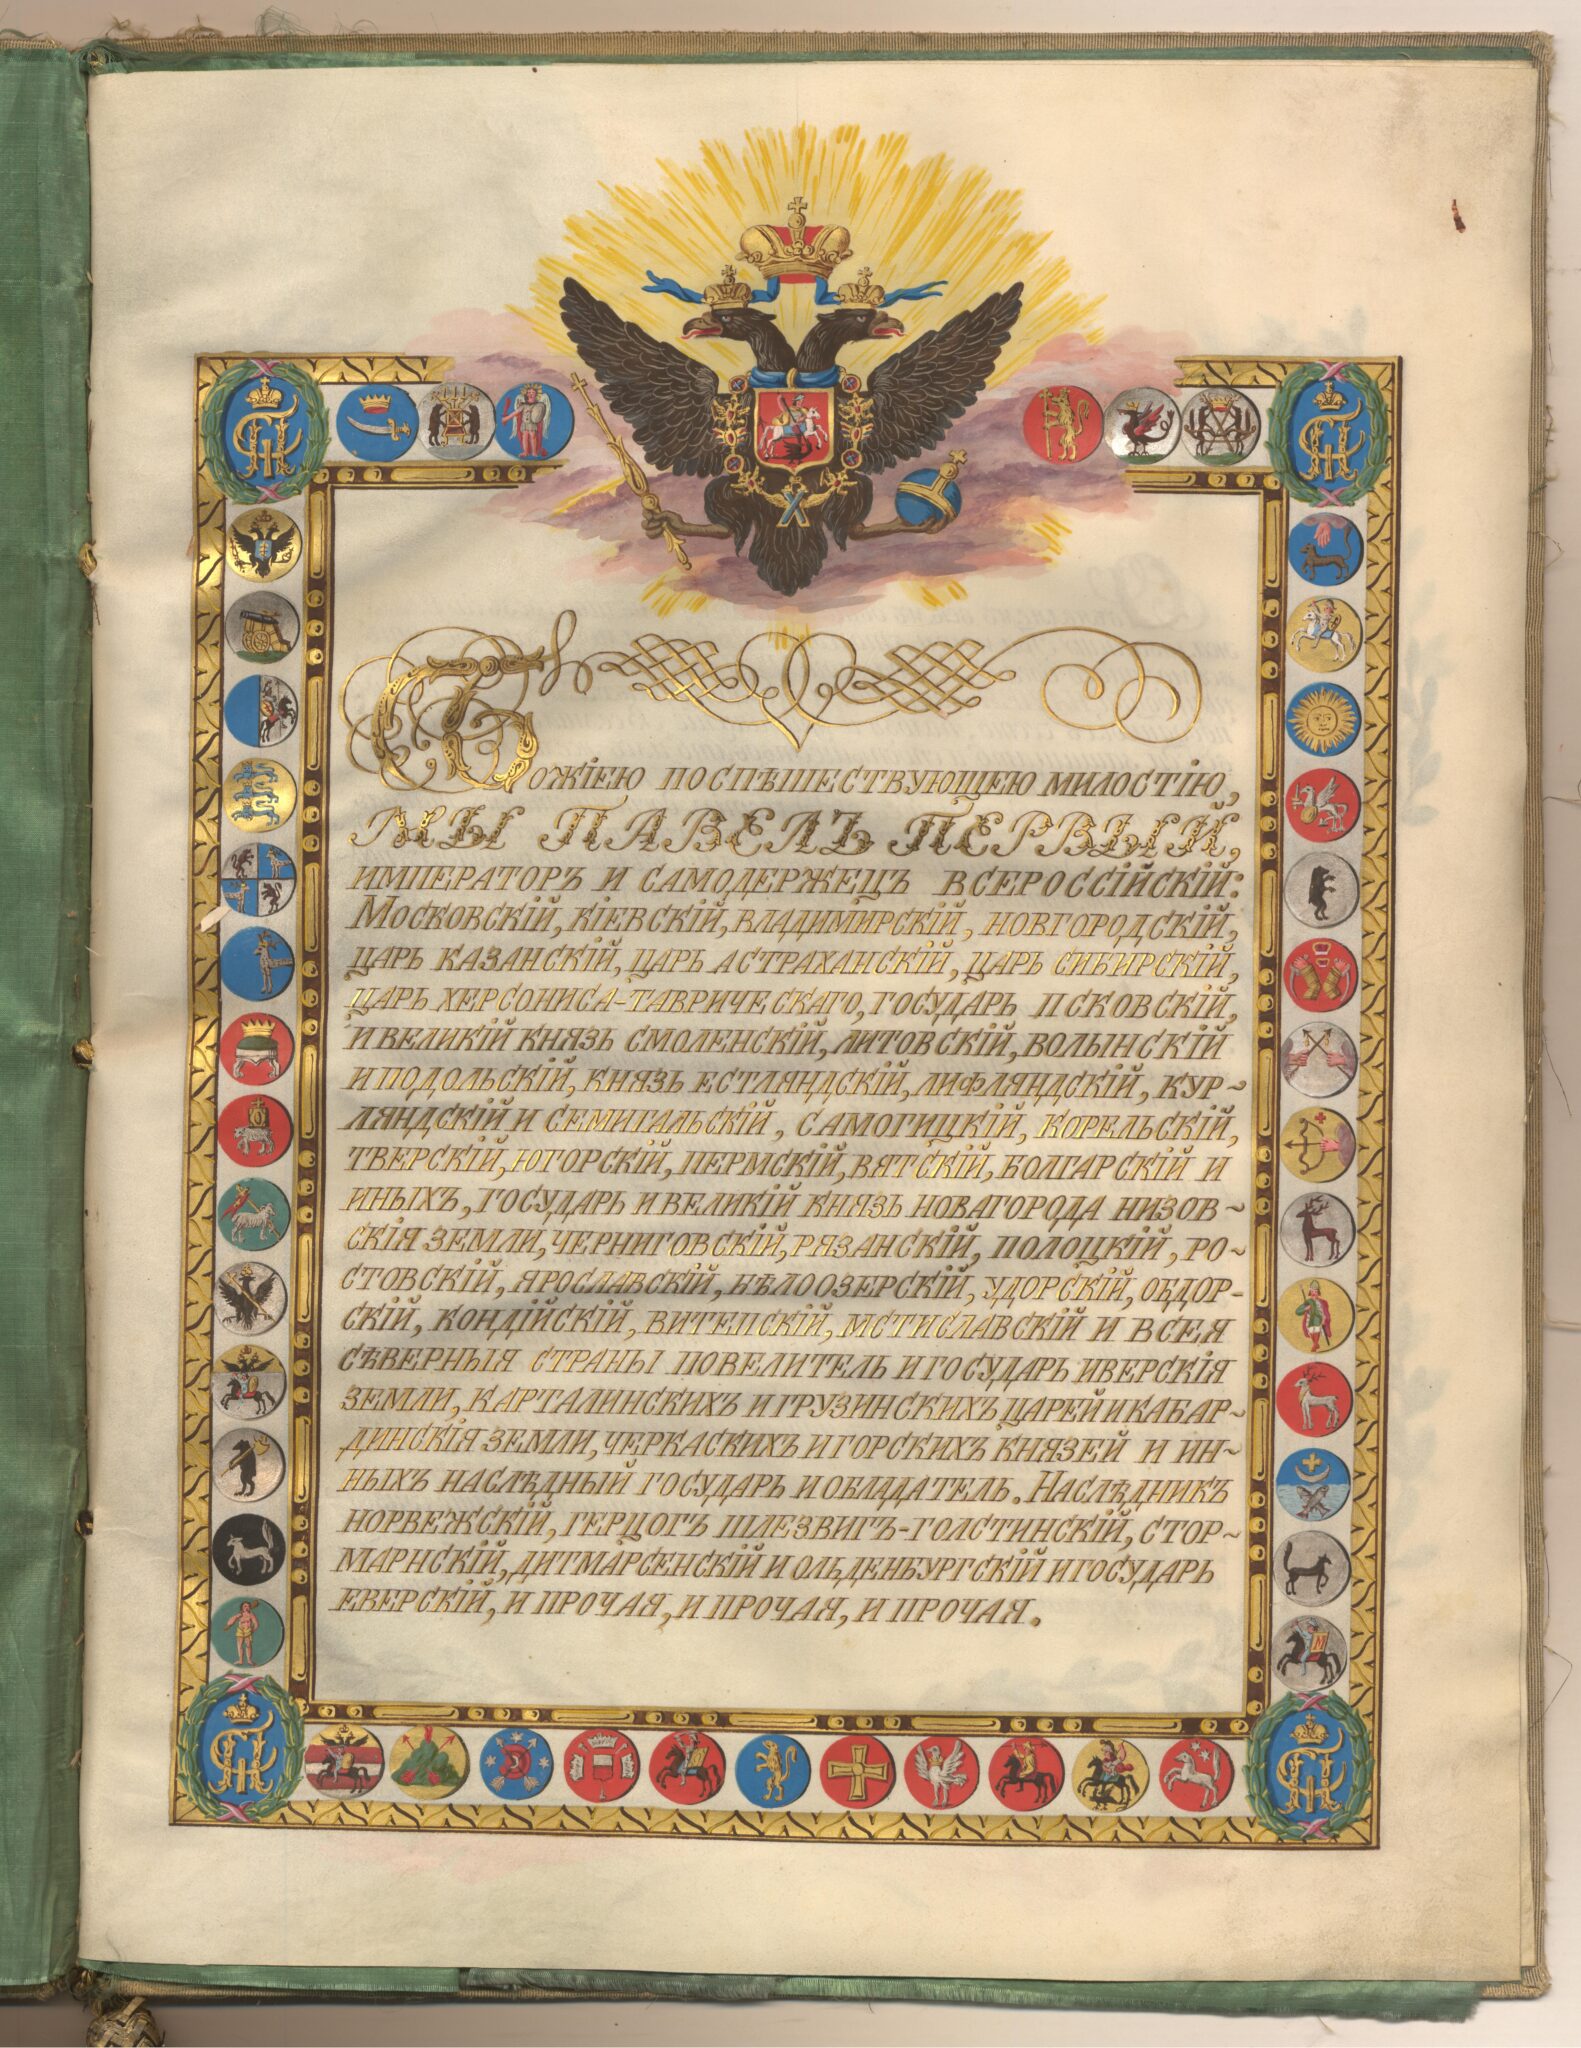 Божіею поспѣшествующею милостію,
МЫ ПАВЕЛЪ ПЕРВЫЙ,
императоръ и самодержецъ всероссійскій:
Московскій, кіевскій, владимирскій, новгородскій,
царь казанскій, царь астраханскій, царь сибирскій,
царь херсониса-таврическаго, государь псковскій,
и великій князь смоленскій, литовскій, волынскій
и подольскій, князь естляндскій, лифляндскій, кур~
ляндскій и семигальскій, самогицкій, корельскій,
тверскій, югорскій, пермскій, вятскій, болгарскій и
иныхъ, государь и великій князь новагорода низов~
скія земли, черниговскій, рязанскій, полоцкій, ро~
стовскій, ярославскій, бѣлоозерскій, удорскій, обдор-
скій, кондійскій, витепскій, мстиславскій и всея
сѣверныя страны повелитель и государь иверскія
земли, карталинскихъ и грузинскихъ царей и кабар~
динскія земли, черкаскихъ и горскихъ князей и ин~
ныхъ наслѣдный государь и обладатель. Наслѣдникъ
норвежскій, герцогъ шлезвигъ-голстинскій, стор~
марнскій, дитмарсенскій и ольденбургскій и государь
еверскій, и прочая, и прочая, и прочая.